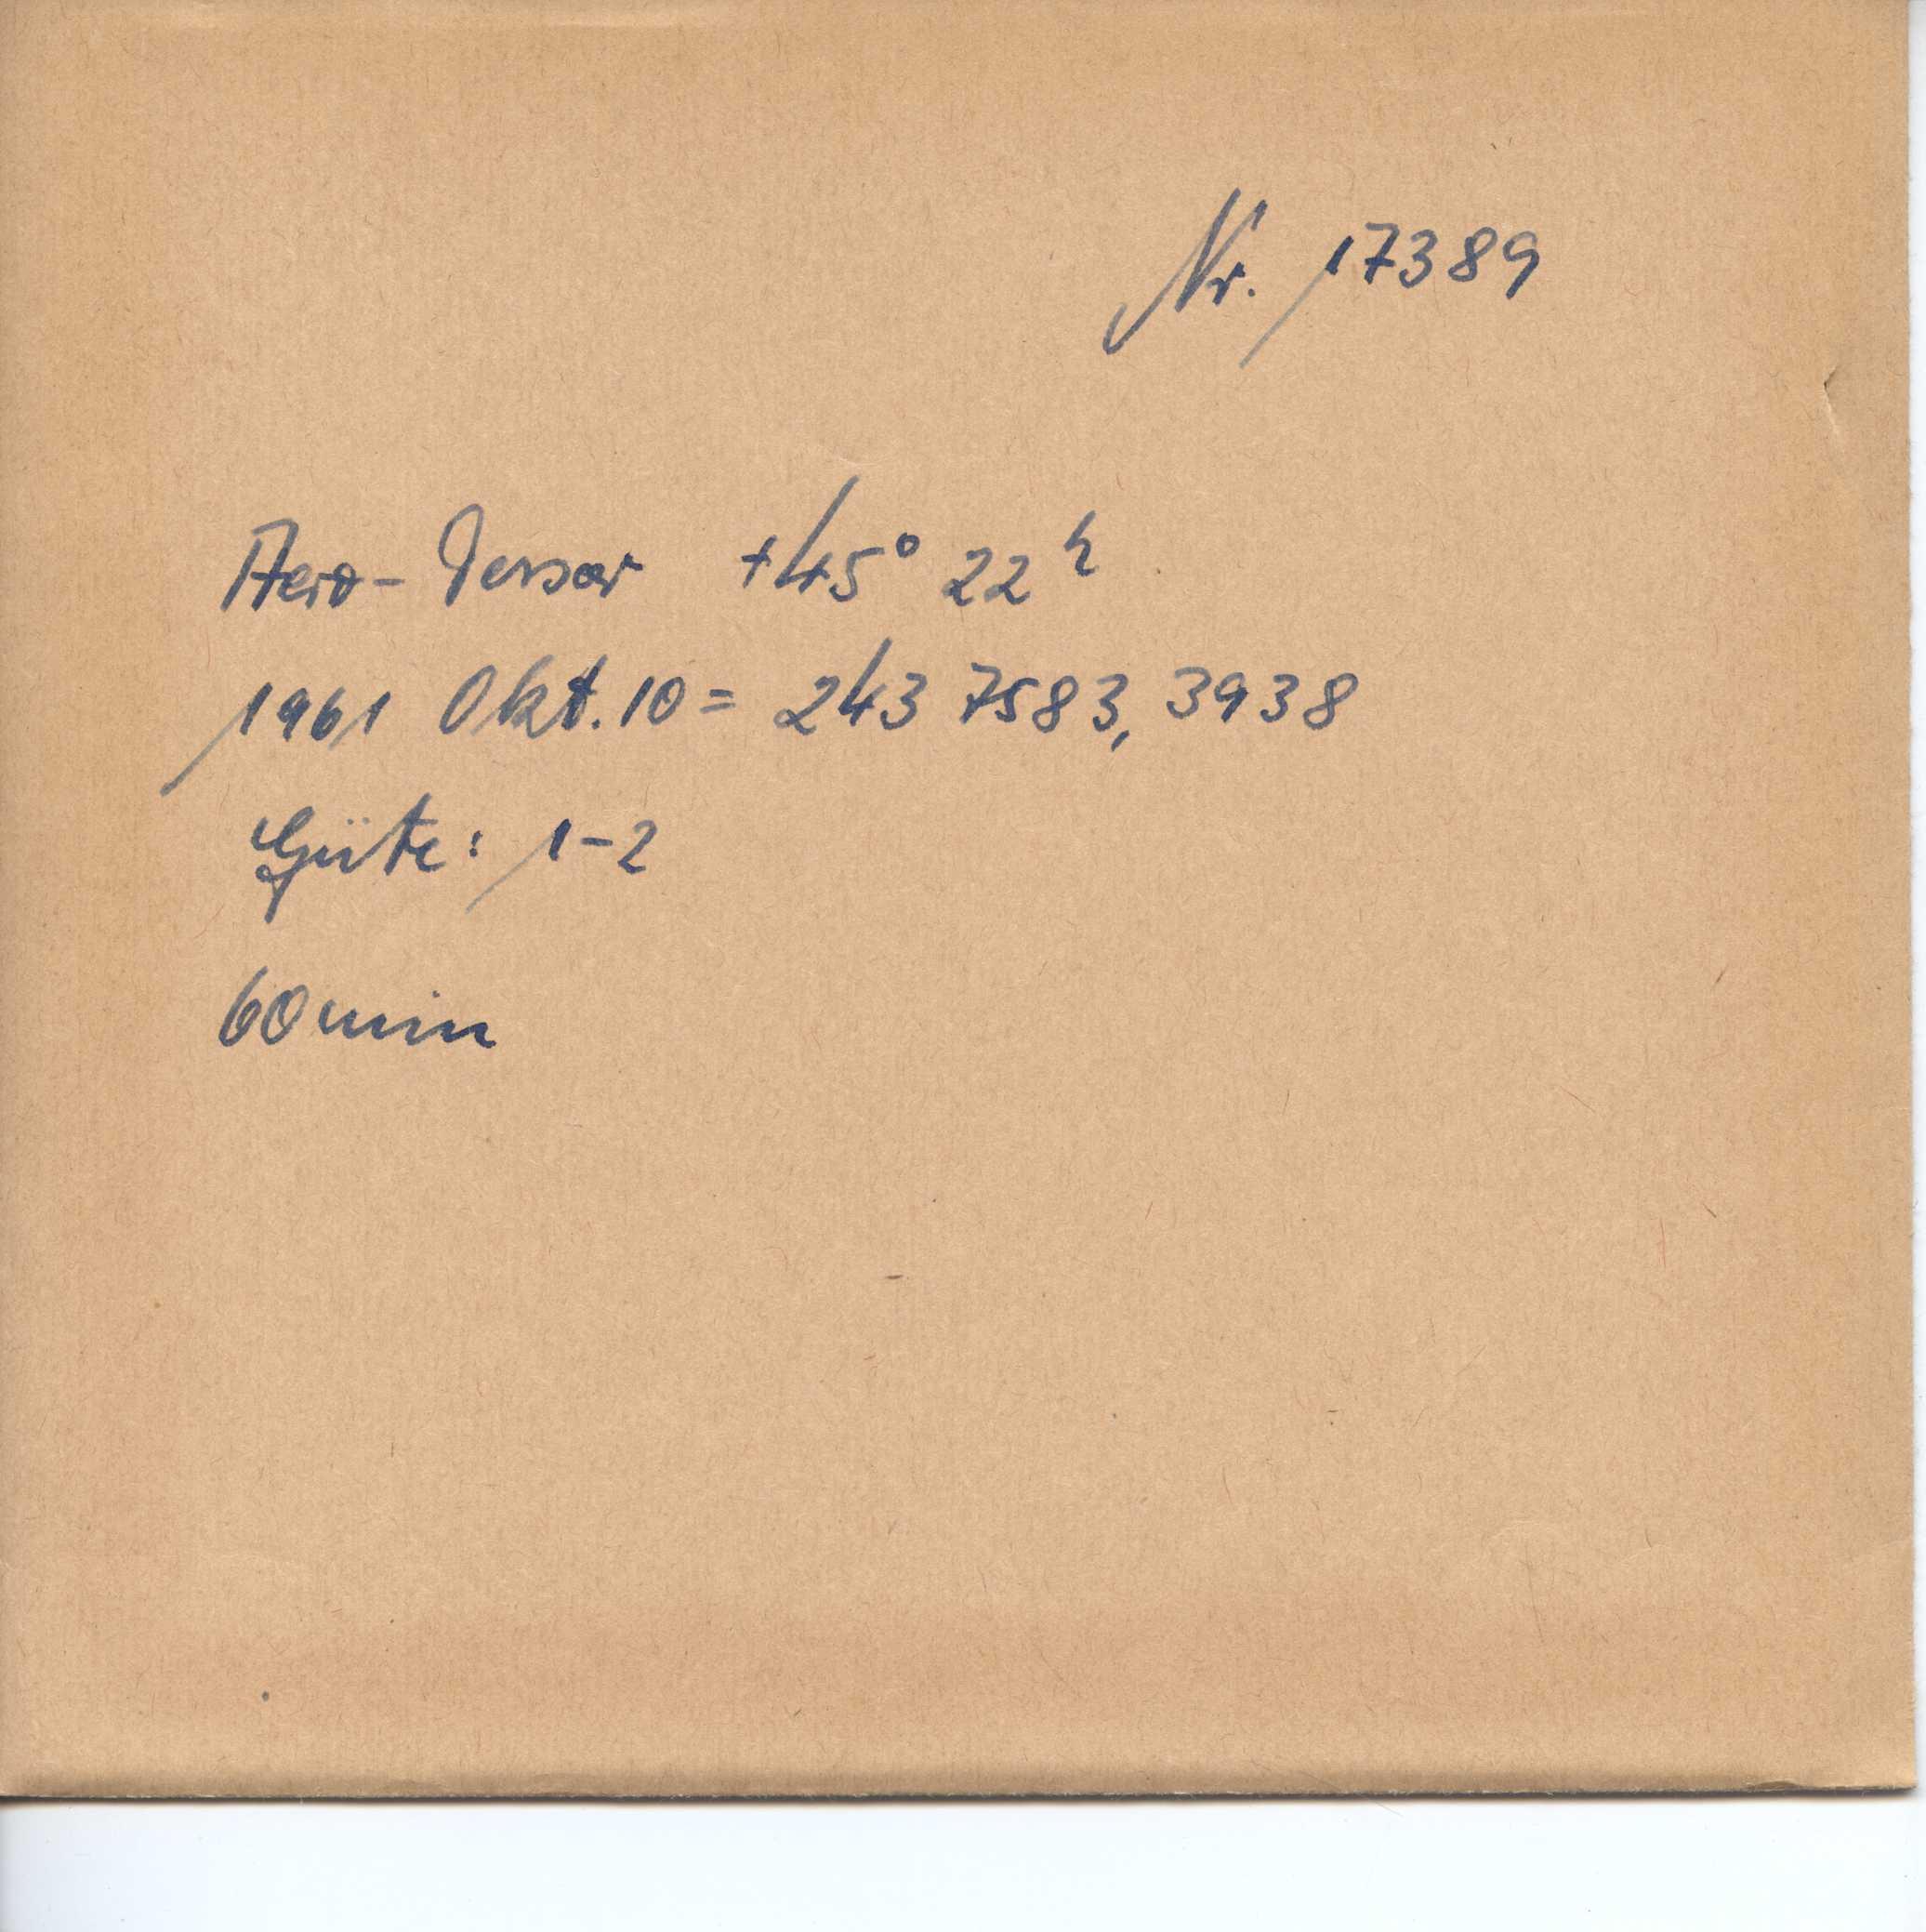 Nr. 17389
Aero-Tessar +45° 22h
1961 Okt. 10 = 243 7583,3938
Güte: 1-2
60 min